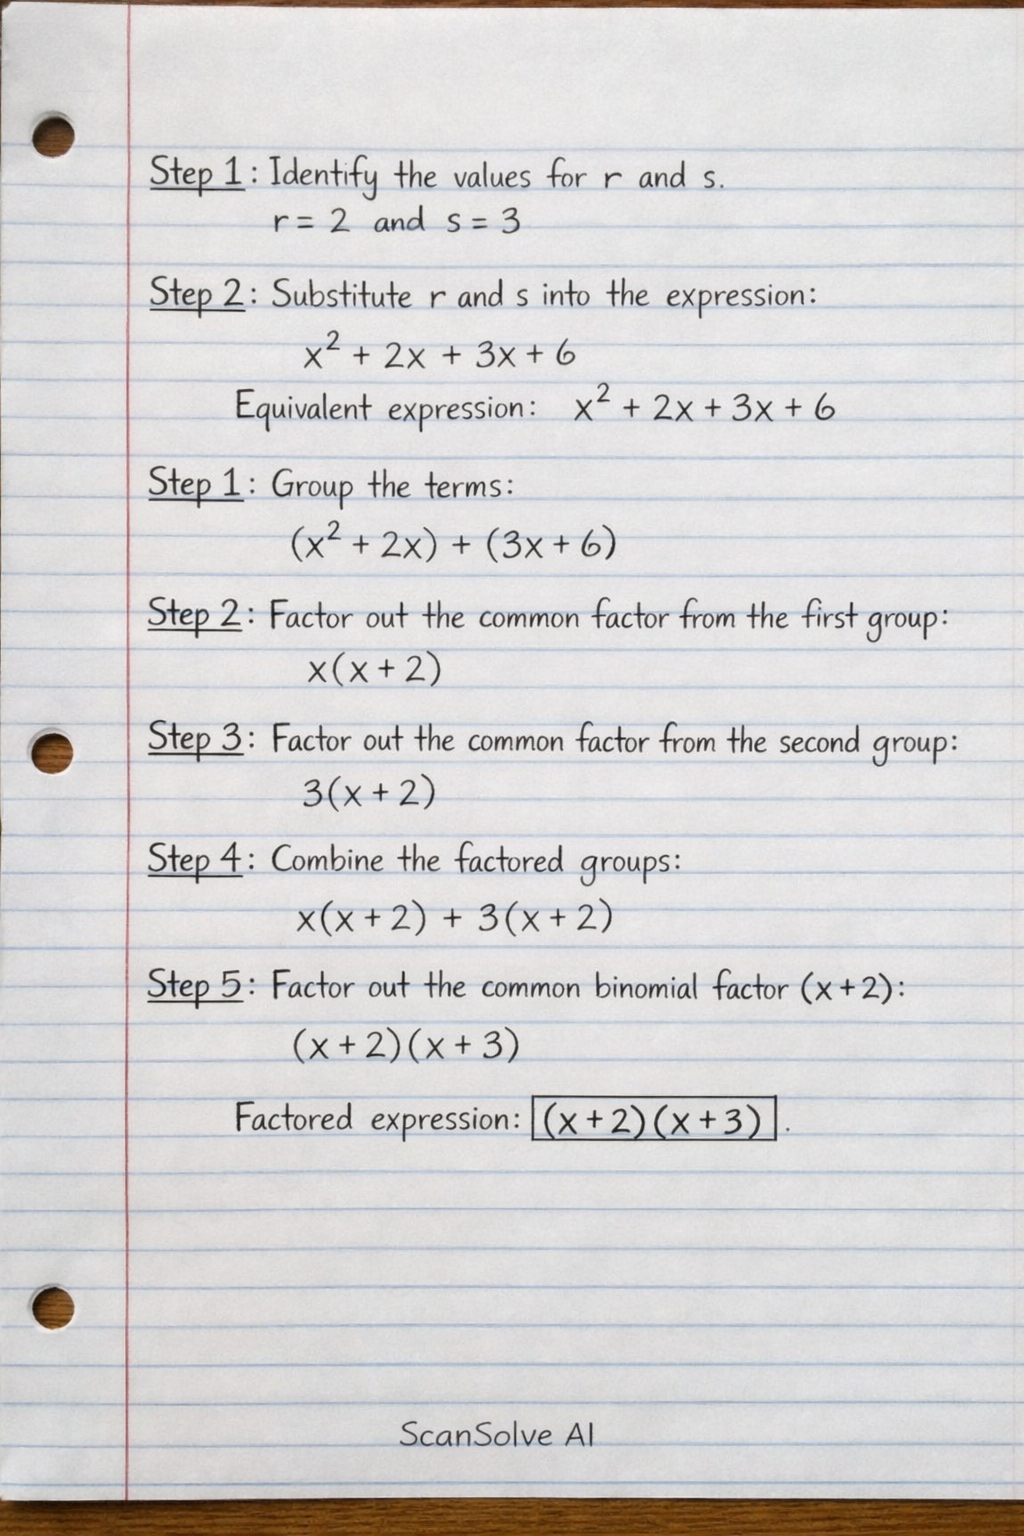 Step 1: Identify the values for r and s.
r = 2 and s = 3
Step 2: Substitute r and s into the expression:
x² + 2x + 3x + 6
Equivalent expression: x² + 2x + 3x + 6
Step 1: Group the terms:
(x² + 2x) + (3x + 6)
Step 2: Factor out the common factor from the first group:
x(x + 2)
Step 3: Factor out the common factor from the second group:
3(x + 2)
Step 4: Combine the factored groups:
x(x + 2) + 3(x + 2)
Step 5: Factor out the common binomial factor (x + 2):
(x + 2)(x + 3)
Factored expression: (x + 2)(x + 3).
ScanSolve AI